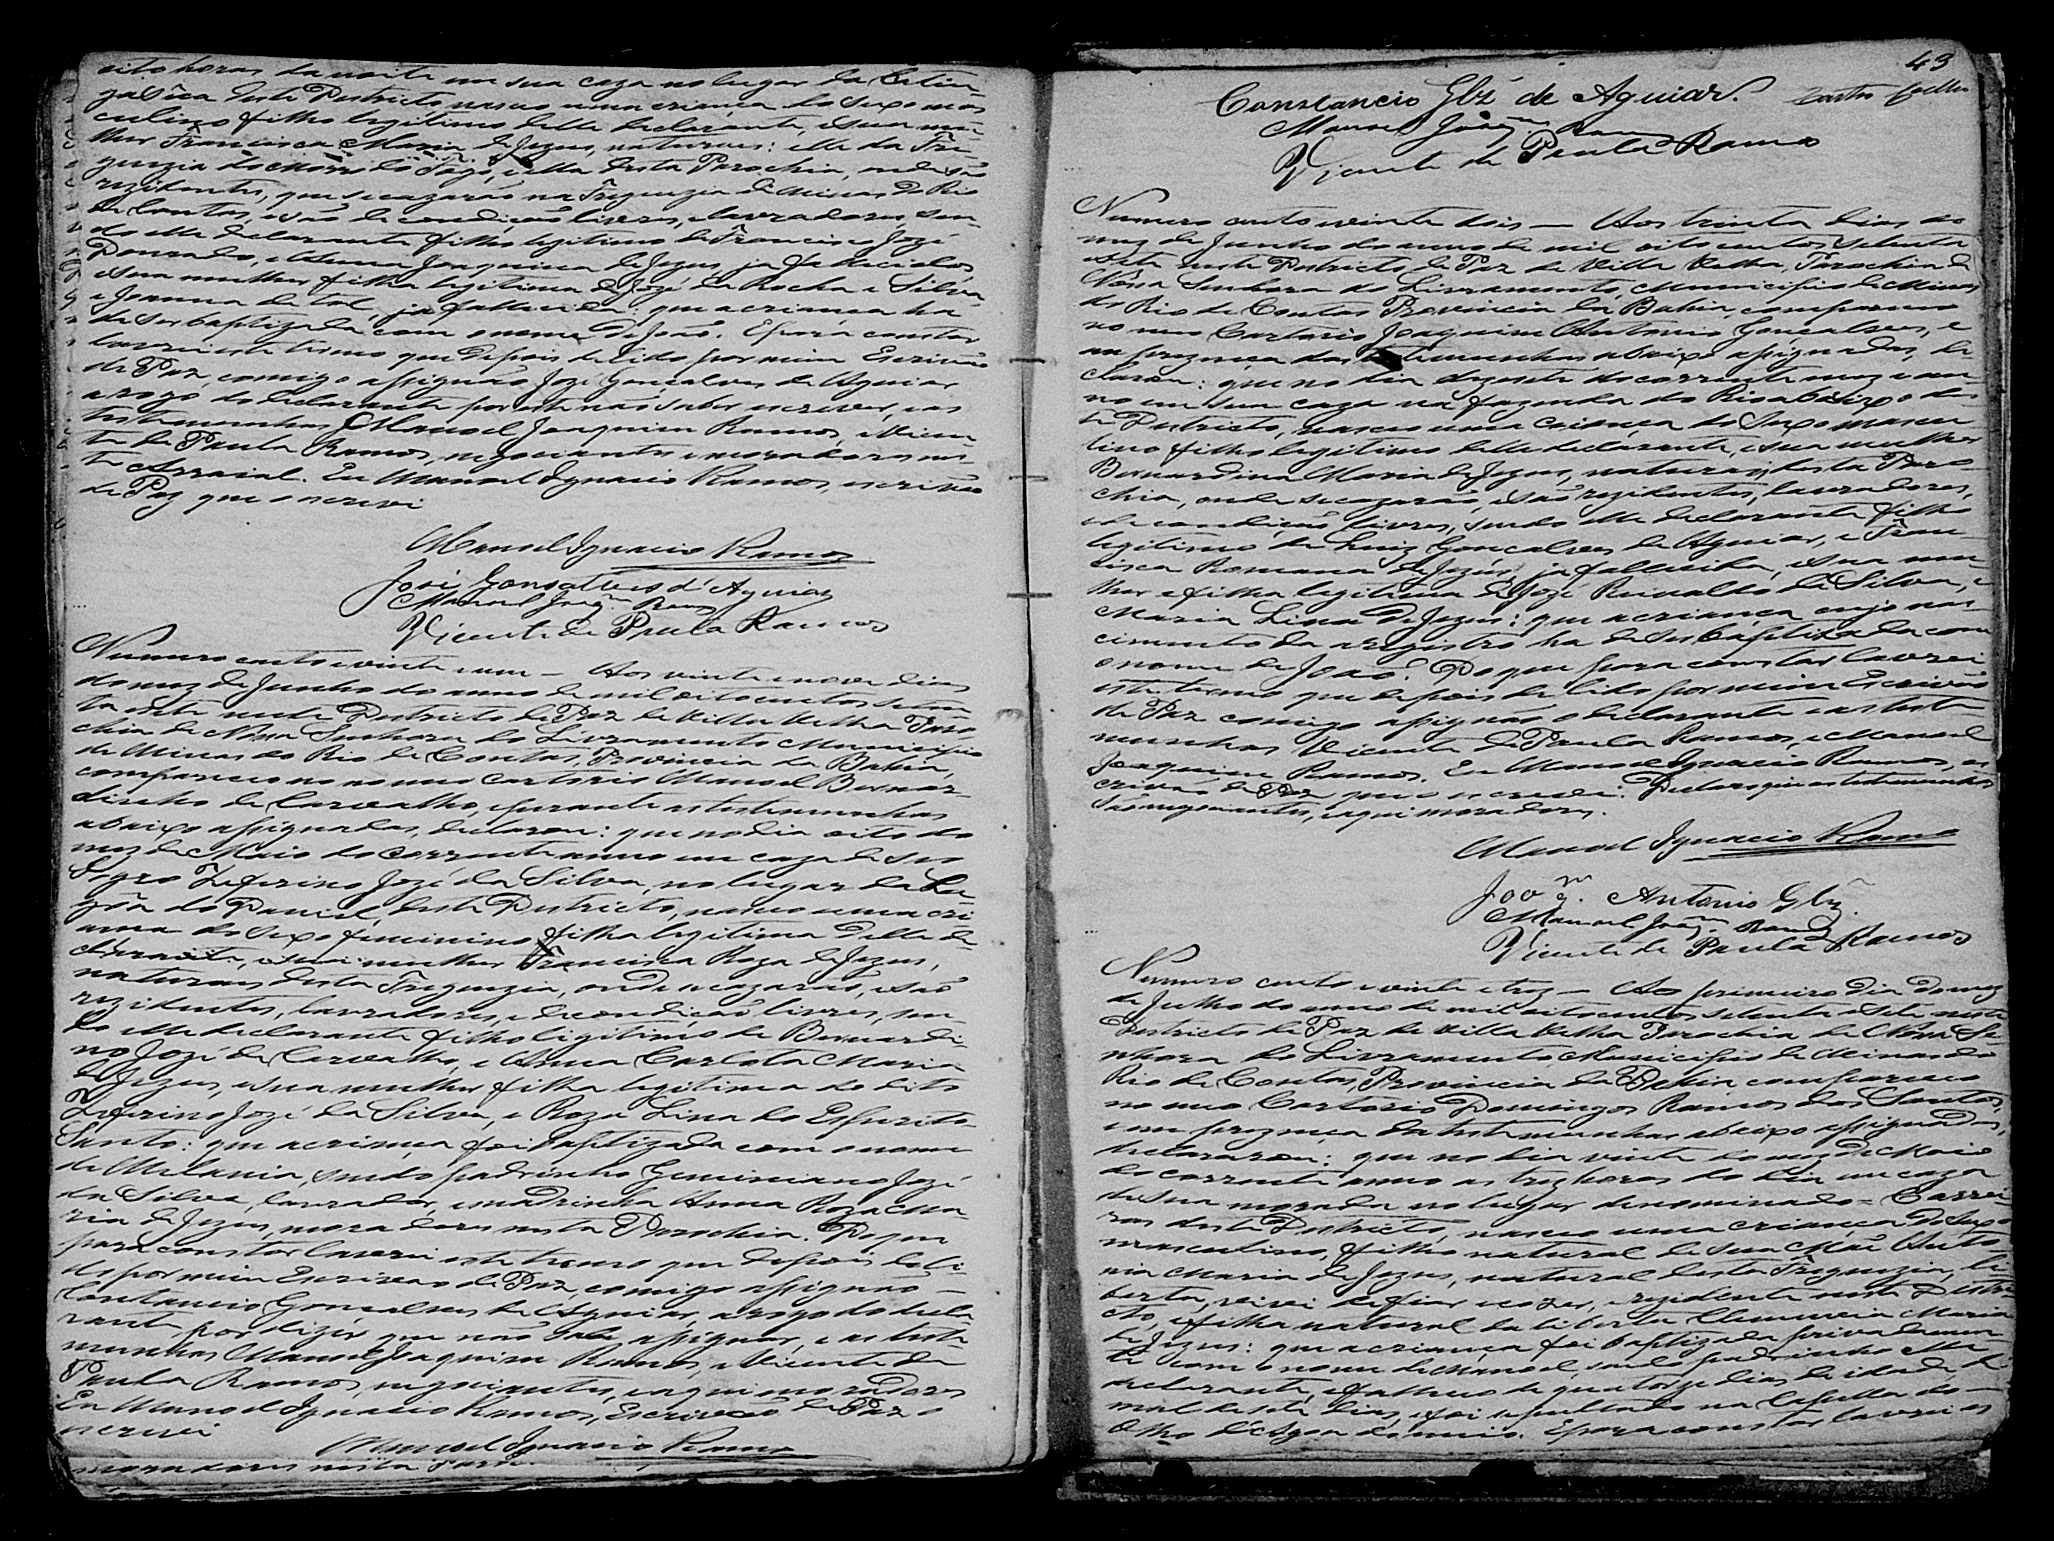 oito horas da noite em sua caza no lugar da
deste Districto nasceu uma criança do sexo mas
culino filho legitimo delle declarante, e sua mu-
lher Francisca Maria de Jezus, naturaes: elle da Fre-
guezia do Morro do Fogo, e ella desta Parochia, onde são
rezidentes, que se cazarão na Freguezia de Minas do Rio
de Contas, e são de condição livres, e lavradores, sen-
do elle declarante filho legitimo de Francisco Jozé
Dourado, e Anna Joaquina de Jezus, ja fallecidos,
e sua mulher filha legitima de Jozé da Rocha e Silva
e Joanna de tal, ja fallecida: que a criança ha
de ser baptizada com o nome de João. E para constar
lavrei este termo que depois de lido por mim Escrivão
de Paz, comigo assignão Jozé Gonçalves de Aguiar
a rogo do declarante por este não saber escrever, e as
testemunhas Manoel Joaquim Ramos, e Vicen-
te de Paula Ramos, negociantes e moradores nes-
te Arraial. Eu Manoel Ignacio Ramos, escrivão
de Paz que o escrevi
Manoel Ignacio Ramos
José Gonsalves d'Aguiar
Manoel Joaqm Ramos
Vicente de Paula Ramos
Numero cento e vinte e um — Aos vinte e nove dias
do mez de Junho do anno de mil oito centos seten-
ta e sete neste Districto de Paz de Villa Velha Paro
chia de Nossa Senhora do Livramento Municipio
de Minas do Rio de Contas, Provincia da Bahia,
compareceo no meu Cartorio Manoel Bernar-
dinho de Carvalho, e perante as testemunhas
abaixo assignadas, declarou: que no dia oito do
mez de Maio do corrente anno em caza de seo
Sogro Zeferino Jozé da Silva, no lugar da La-
gôa do Daniel, deste Districto, nasceo uma cri
ança do sexo feminino filha legitima delle de
clarante, e sua mulher Francisca Roza de Jezus,
naturaes desta Freguezia, onde se cazarão, e são
rezidentes, lavradores, e de condição livres, sen-
do elle declarante filho legitimo de Bernardi-
no Jozé de Carvalho, e Anna Carlota Maria
de Jezus, e sua mulher filha legitima do dito
Zeferino Jozé da Silva, e Roza Lina do Espirito
Santo: que a criança foi baptizada com o nome
de Melania, sendo padrinho Geminiano Jozé
da Silva, lavrador, e madrinha Anna Roza Ma-
ria de Jezus, moradores nesta Parochia. Do que
para constar lavrei este termo que depois de li-
do por mim Escrivão de Paz, comigo assignão —
Constancio Gonçalves de Aguiar, a rogo do decla
rante por dizer que não sabe assignar, e as teste-
munhas Manoel Joaquim Ramos, e Vicente de
Paula Ramos, negociantes, e aqui moradores
Eu Manoel Ignacio Ramos, Escrivão de Paz o
escrevi
Manoel Ignacio Ramos
moradores nesta
43
Constancio Glz de Aguiar.
Manoel Joaqm Ramos
Vicente de Paula Ramos
Numero cento e vinte dois — Aos trinta dias do
mez de Junho do anno de mil oito centos setenta
e sete neste Districto de Paz de Villa Velha, Parochia de
Nossa Senhora do Livramento, Municipio de Minas
do Rio de Contas Provincia da Bahia, compareceo
no meu Cartorio Joaquim Antonio Gonçalves, e
na prezença das testemunhas abaixo assignadas, de-
clarou: que no dia dezesete do corrente mez e an-
no em sua caza na fazenda do Rio abaixo des-
te Districto, nasceo uma criança do Sexo mascu-
lino filho legitimo delle declarante, e sua mulher
Bernardina Maria de Jezus, naturaes desta Paro-
chia, onde se cazarão, e são rezidentes, lavradores,
e de condição livres, sendo elle declarante filho
legitimo de Luiz Gonçalves de Aguiar, e Fran-
cisca Romana de Jezus, ja fallecida, e sua mu-
lher e filha legitima de Jozé Reinaldo da Silva, e
Maria Lina de Jezus: que a criança cujo nas-
cimento da a registro ha de ser baptizada com
o nome de João. Do que para constar lavrei
este termo que depois de lido por mim Escrivão
de Paz comigo assignão o declarante e as teste-
munhas Vicente de Paula Ramos, e Manoel
Joaquim Ramos. Eu Manoel Ignacio Ramos, es-
crivão de Paz que o escrevi. Declaro que as testemunhas
são negociantes, e aqui moradores.
Manoel Ignacio Ramos
Joaqm. Antonio Glz.
Manoel Joaqm. Ramos
Vicente de Paula Ramos
Numero cento e vinte e trez — Ao primeiro dia do mez
de Julho do anno de mil oito centos setenta e sete neste
Districto de Paz de Villa Velha Parochia de Nossa Se-
nhora do Livramento, Municipio de Minas do
Rio de Contas, Provincia da Bahia compareceo
no meu Cartorio Domingos Ramos dos Santos,
e em prezença das testemunhas abaixo assignadas,
declarou: que no dia vinte do mez de Maio
do corrente anno as trez horas do dia em caza
de sua morada no lugar denominado = Barrei
ros deste Districto, nasceo uma criança do Sexo
masculino, filho natural de sua Mãe Anto-
nia Maria de Jezus, natural desta Freguezia, li-
berta, vive de fiar e cozer, e rezidente neste Distri-
cto, e filha natural da liberta Clemencia Maria
de Jezus: que a criança foi baptizada privadamen-
te com o nome de Manoel, sendo padrinho elle
declarante, e falleceo de quatorze dias de idade, de
mal de sete dias, e foi sepultado na Capella do —
Olho d'Agoa do meio. E para constar lavrei es